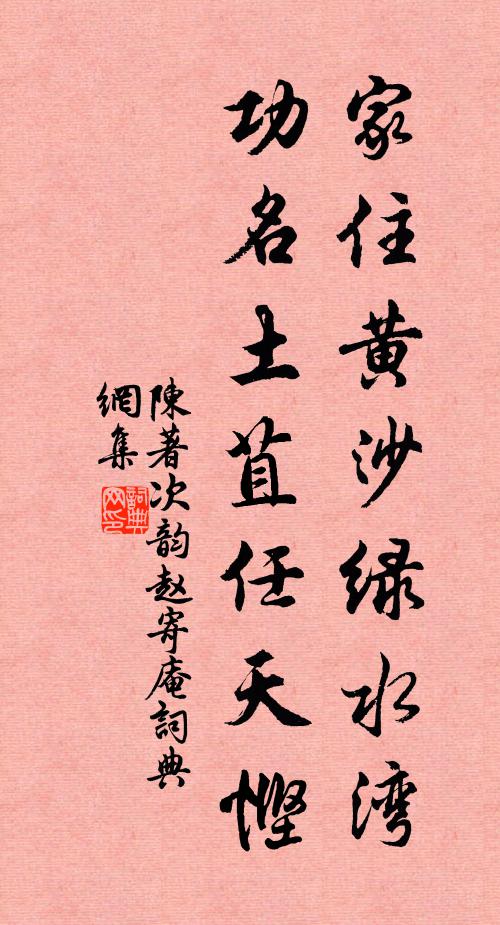 家住黄沙绿水湾
功名土苴任天悭
陳著次韵赵寄庵詞典
網集
詞典
网印